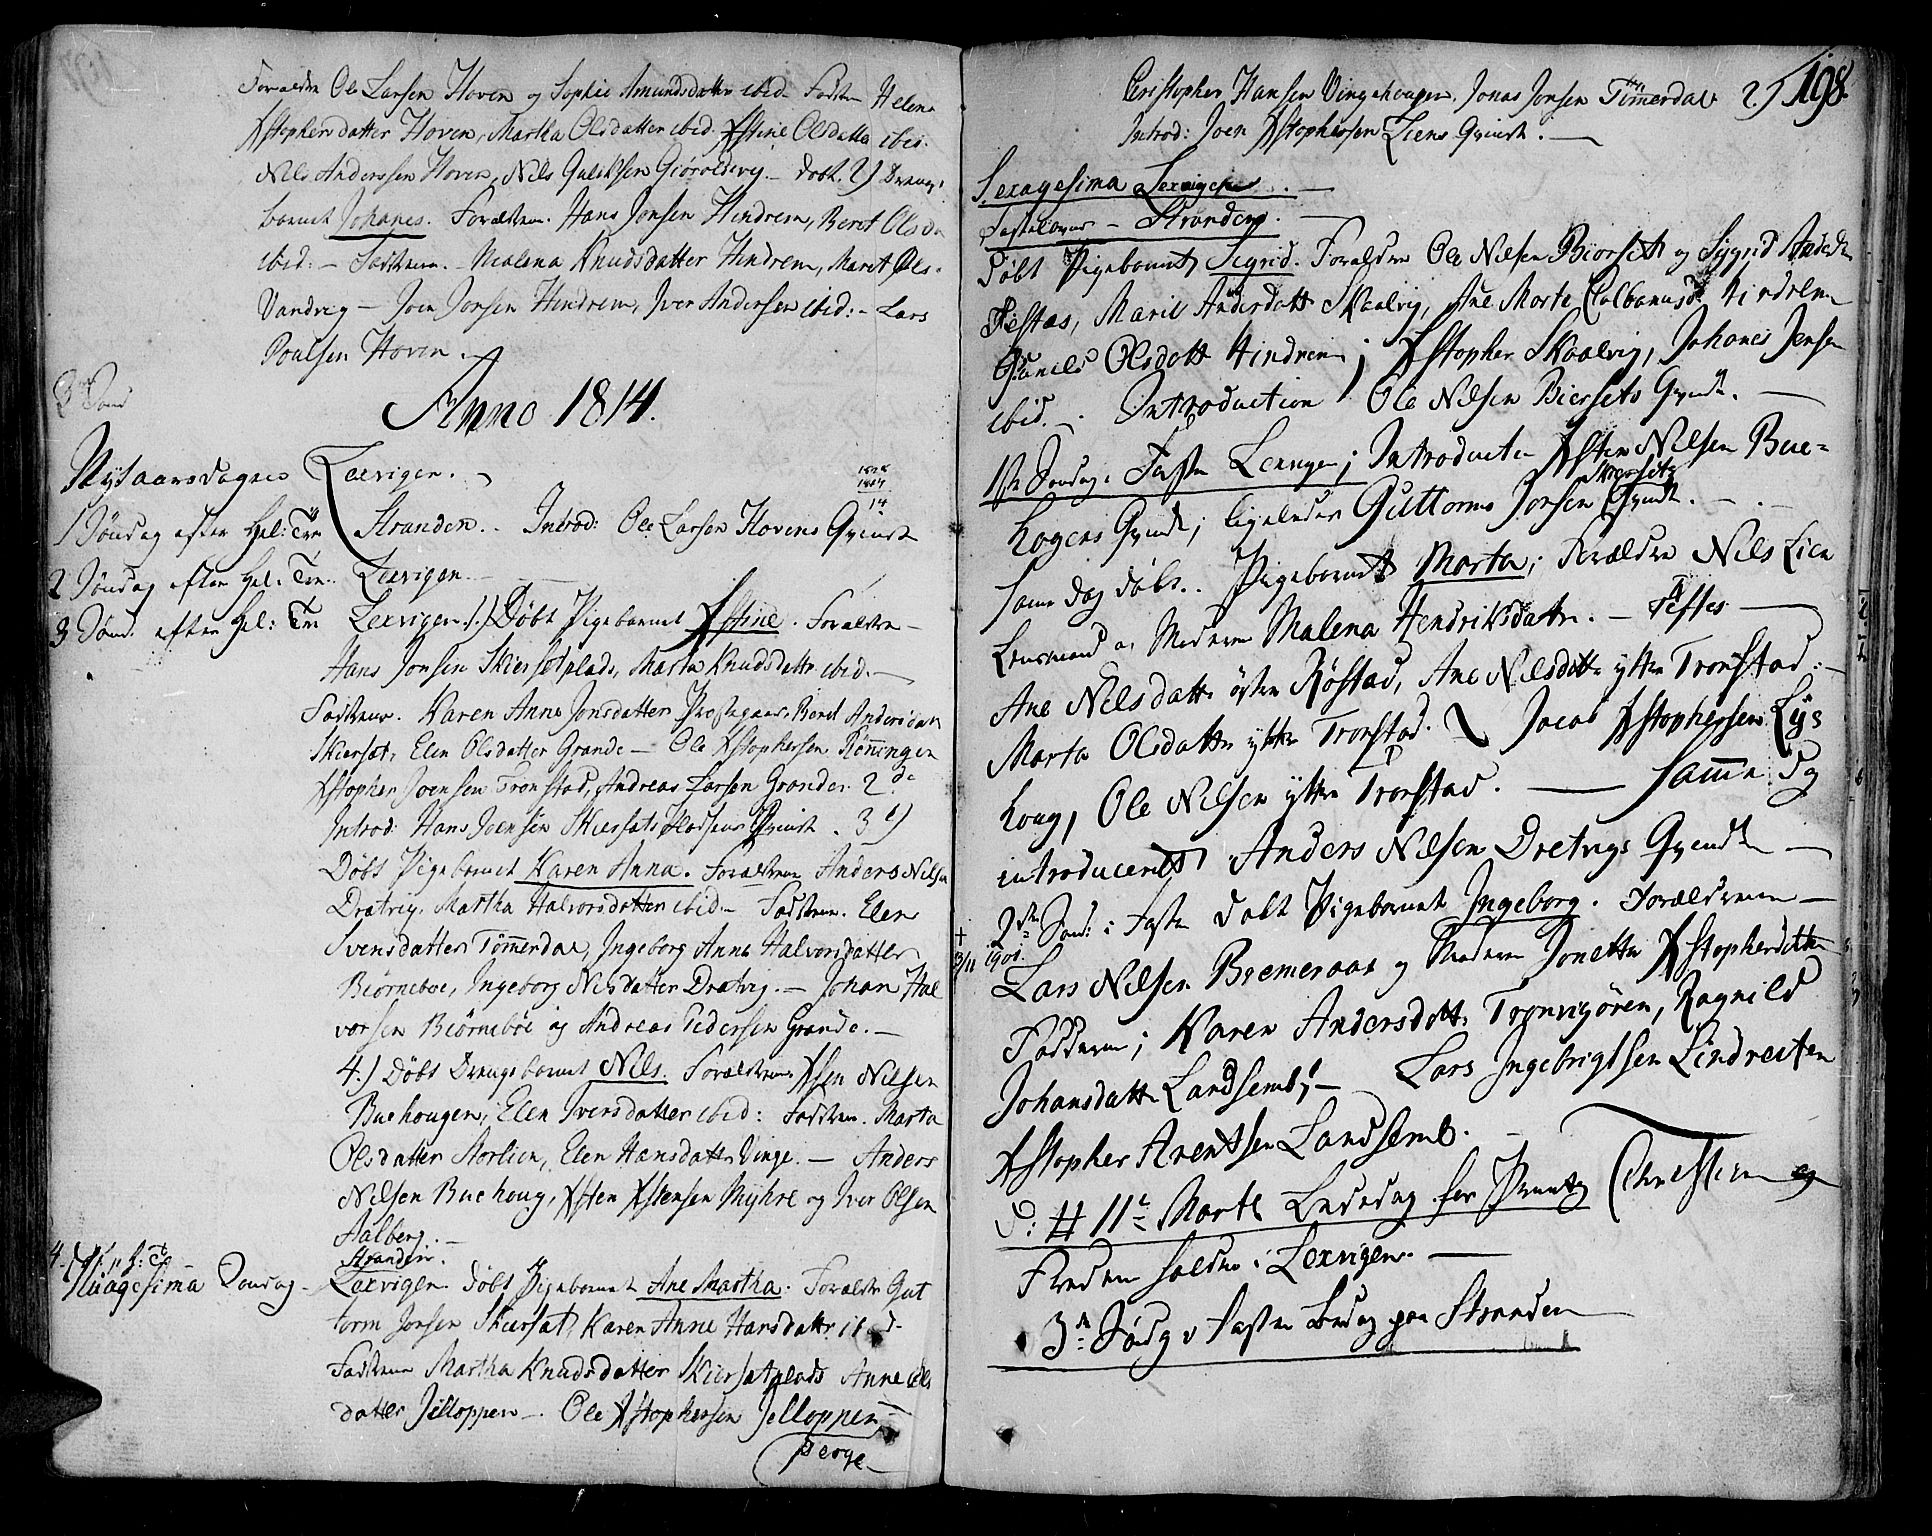 Forældre Ole Larsen Hoven og Sophie Amundsdatter ibid. Fadderne Helena
Xstophersdatter Hoven, Martha Olsdatter ibid. Xstine Olsdatter ibid.
Nils Anderssen Hoven, Nils Guliksen Giøroldsvig. - Døbt. 2) Drenge-
barnet Johanes. Forældrene. Hans Jonsen Hindrem, Beret Olsda
ibid: - Fadderne. - Malena Knudsdatter Hindrem, Maret Ols.
Vandvig - Joen Jonsen Hindrem, Iver Andersen ibid: - Lars
Poulsen Hoven.
Anno 1814.
Nytaarsdagen Lexvigen.
1828
1814
14
1 Søndag efter Hel: Tre Stranden. Introd: Ole Larsen Hovens Qvinde
2 Søndag efter Hel. Tre. Lexvigen.
3 Sønd. efter Hel: Tre Lexvigen. 1.) Døbt Pigebarnet Xstine. Forældre -
Hans Jonsen Skiersetplads, Marta Knudsdattr ibid. -
Fadderne. Karen Anne Jonsdatter Præstegaar, Beret Andersdatr
Skiersæt, Elen Olsdatter Grande - Ole Xstophersen Rønningen
Xstopher Joensen Tronstad, Andreas Larsen Grande. 2de
Introd: Hans Joensen Skiersæts Pladsens Qvinde. 3)
Døbt Pigebarnet Karen Anna. Forældrene Anders Nilsen
Drætvig, Martha Halvorsdatter ibid - Fadderne. Elen
Svensdatter Tømmerdal, Ingeborg Anna Halvorsdatter
Biørneboe, Ingeborg Nilsdatter Drætvig. - Johan Hal
vorsen Biørneboe og Andreas Pedersen Grande. -
4.) Døbt Drengebarnet Nils. Forældrene Xsten Nilsen
Buehougen, Elen Iversdatter ibid: Fadderne. Marta
Olsdatter Storlien, Elen Hansdatter Vinge. - Anders
Nilsen Buehoug, Xsten Xstensen Myhre og Iver Olsen
Aalberg. -
Stranden.
Søndag - Lexvigen. Døbt Pigebarnet Ane Martha. Forældre Gut
torm Jonsen Skiersæt, Karen Anne Hansdattr ibid -
Fadderne Martha Knudsdatter Skiersætplads Anne Ols
datter Jelloppen -. Ole Xstophersen Jelloppen
Verge
198.
Cristopher Hansen Vingehougen. Jonas Jonsen Tømmerdal 2)
Introd: Joen Xstophersen Liens Qvinde. -
Sexagesima Lexvigen. -
Fastelavns - Stranden. -
Døbt Pigebarnet Sigrid. Forældre Ole Nilsen Biørsett og Sigrid
Testes, Marit Andersdatt Skaalvig, Ane Marta Hindrem
Gunild Olsdatt Hindrem; Xstopher Skaalvig, Johanes Jensen
ibid. -. Introduction Ole Nilsen Biersets Qvinde. -
1ste Søndag i Faste Lexvigen; Introducti Xsten Nilsen Bue-
hogens Qvinde; ligeledes Guttorms Jonsen Skiersetz Qvinde. -
Same Dag døbt. Pigebarnet Marta; Forældre Nils Lien
Lensmand og Moderen Malena Hendriksdatter. - Testes -
Ane Nilsdatte østen Røstad, Ane Nilsdatte ytter Tronstad. -
Marta Olsdatte ytter Tronstad. Jacob Xstophersen Lys
houg, Ole Nilsen ytter Tronstad. - Samme Dg
introducerett Anders Nilsen Dretvigs Qvinde -
2den Sønd: i Faste Døbt Pigebarnet Ingeborg. Forældrene -
† 3/11 1901.
Lars Nilsen Bremeraas og Moderen Jonetta Xstopherdatter
Fadderne; Karen Andersdatt. Tronvigøren, Ragnild
Johansdatt Landsemb; - Lars Ingebrigtsen Lindreiten
Xstopher Arentsen Landsemb. -
D: 11te Marti Bededag for Printz Christian og
Freden holdes i Lexvigen. -
3de Søndg i Fasten Bedag paa Stranden